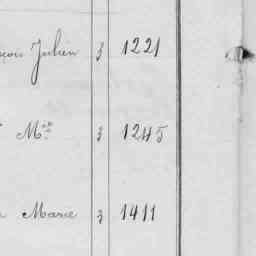 Julien 3 1221
Mie 3 1245
Marie 3 1411